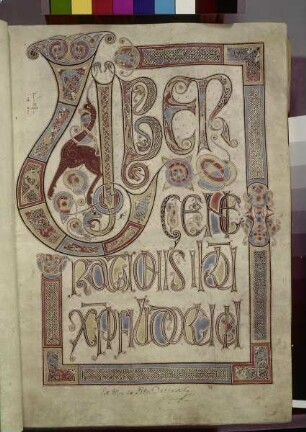 LIBER
GENE
RATIONIS IHU
XPI FILII DAVID